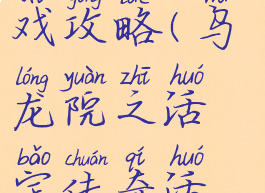 戏攻略(乌
lóng yuàn zhī huó
龙院之活
bǎo chuán qí huó
宝传奇活